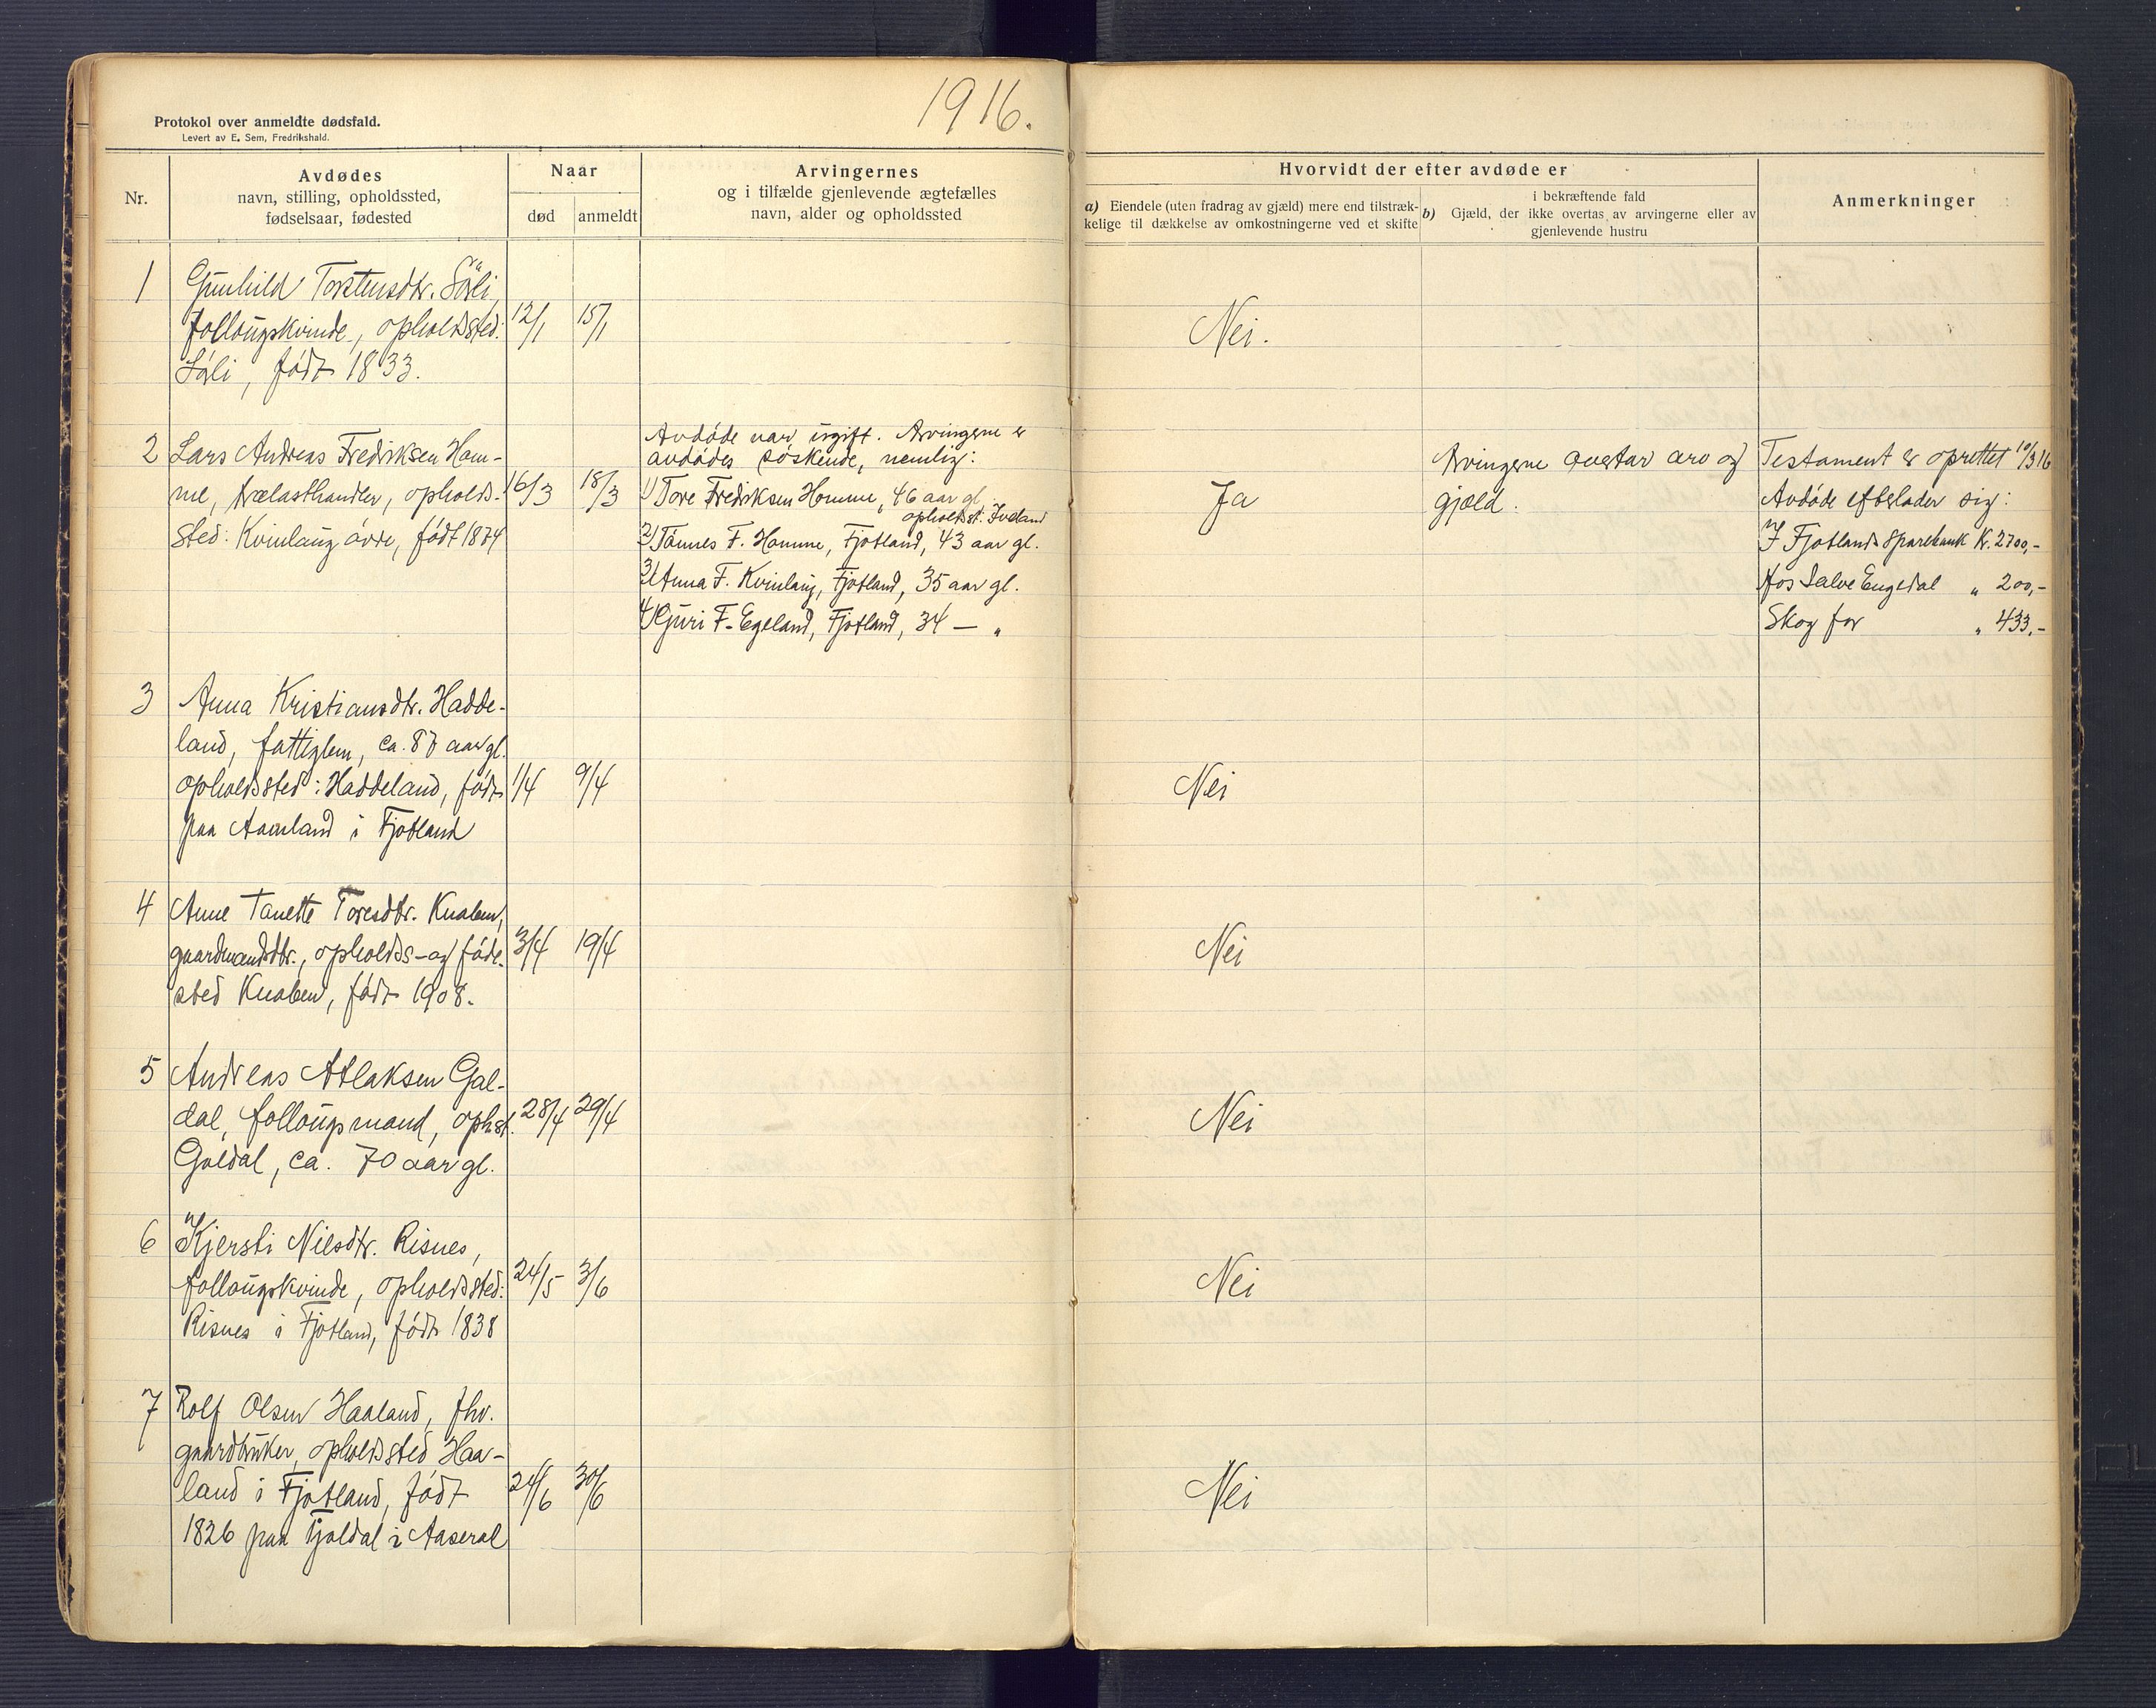 1916.
Protokol over anmeldte dødsfald.
Levert av E. Sem, Fredrikshald.
Nr.
Avdødes
navn, stilling, opholdssted,
fødselsaar, fødested
Naar
død
anmeldt
Arvingernes
og i tilfælde gjenlevende ægtefælles
navn, alder og opholdssted
Hvorvidt der efter avdøde er
a) Eiendele (uten fradrag av gjæld) mere end tilstræk-
kelige til dækkelse av omkostningerne ved et skifte
i bekræftende fald
b) Gjæld, der ikke overtas av arvingerne eller av
gjenlevende hustru
Anmerkninger
1
Gunhild Torstensdtr. Sörli,
follougskvinde, opholdssted:
Sörli, född 1833.
12/1
15/1
Nei.
2
Lars Andreas Fredriksen Hom-
me, trælasthandler, opholds-
sted: Kvinlaug övre, födt 1874
16/3
18/3
Avdöde var ugift. Arvingerne er
avdödes söskende, nemlig:
1) Tore Fredriksen Homme, 46 aar gl.
opholdsst. Iveland
2) Tönnes F. Homme, Fjotland, 43 aar gl.
3) Anna F. Kvinlaug, Fjotland, 35 aar gl.
4) Guri F. Egeland, Fjotland, 34 — "
Ja
Arvingerne overtar arv og
gjæld.
Testament er oprettet 10/3 16
Avdöde efterlader sig:
I Fjotlands Sparebank Kr. 2700,-
Hos Salve Engedal " 200,-
Skog for " 433,-
3
Anna Kristiansdtr. Hadde-
land, fattiglem, ca. 87 aar gl.
opholdssted: Haddeland, födt
paa Aamland i Fjotland
1/4
9/4
Nei
4
Anne Tanette Toresdtr. Knaben,
gaardmandsdtr., opholds- og föde-
sted Knaben, födt 1908.
3/4
19/4
Nei
5
Andreas Atlaksen Gal-
dal, follougsmand, ophst.
Galdal, ca. 70 aar gl.
28/4
29/4
Nei
6
Kjersti Nilsdtr. Risnes,
follougskvinde, opholdssted:
Risnes i Fjotland, födt 1838
24/5
3/6
Nei
7
Rolf Olsen Haaland, fhv.
gaardbruker, opholdssted Haa-
land i Fjotland, födt
1826 paa i Aaseral
24/6
30/6
Nei